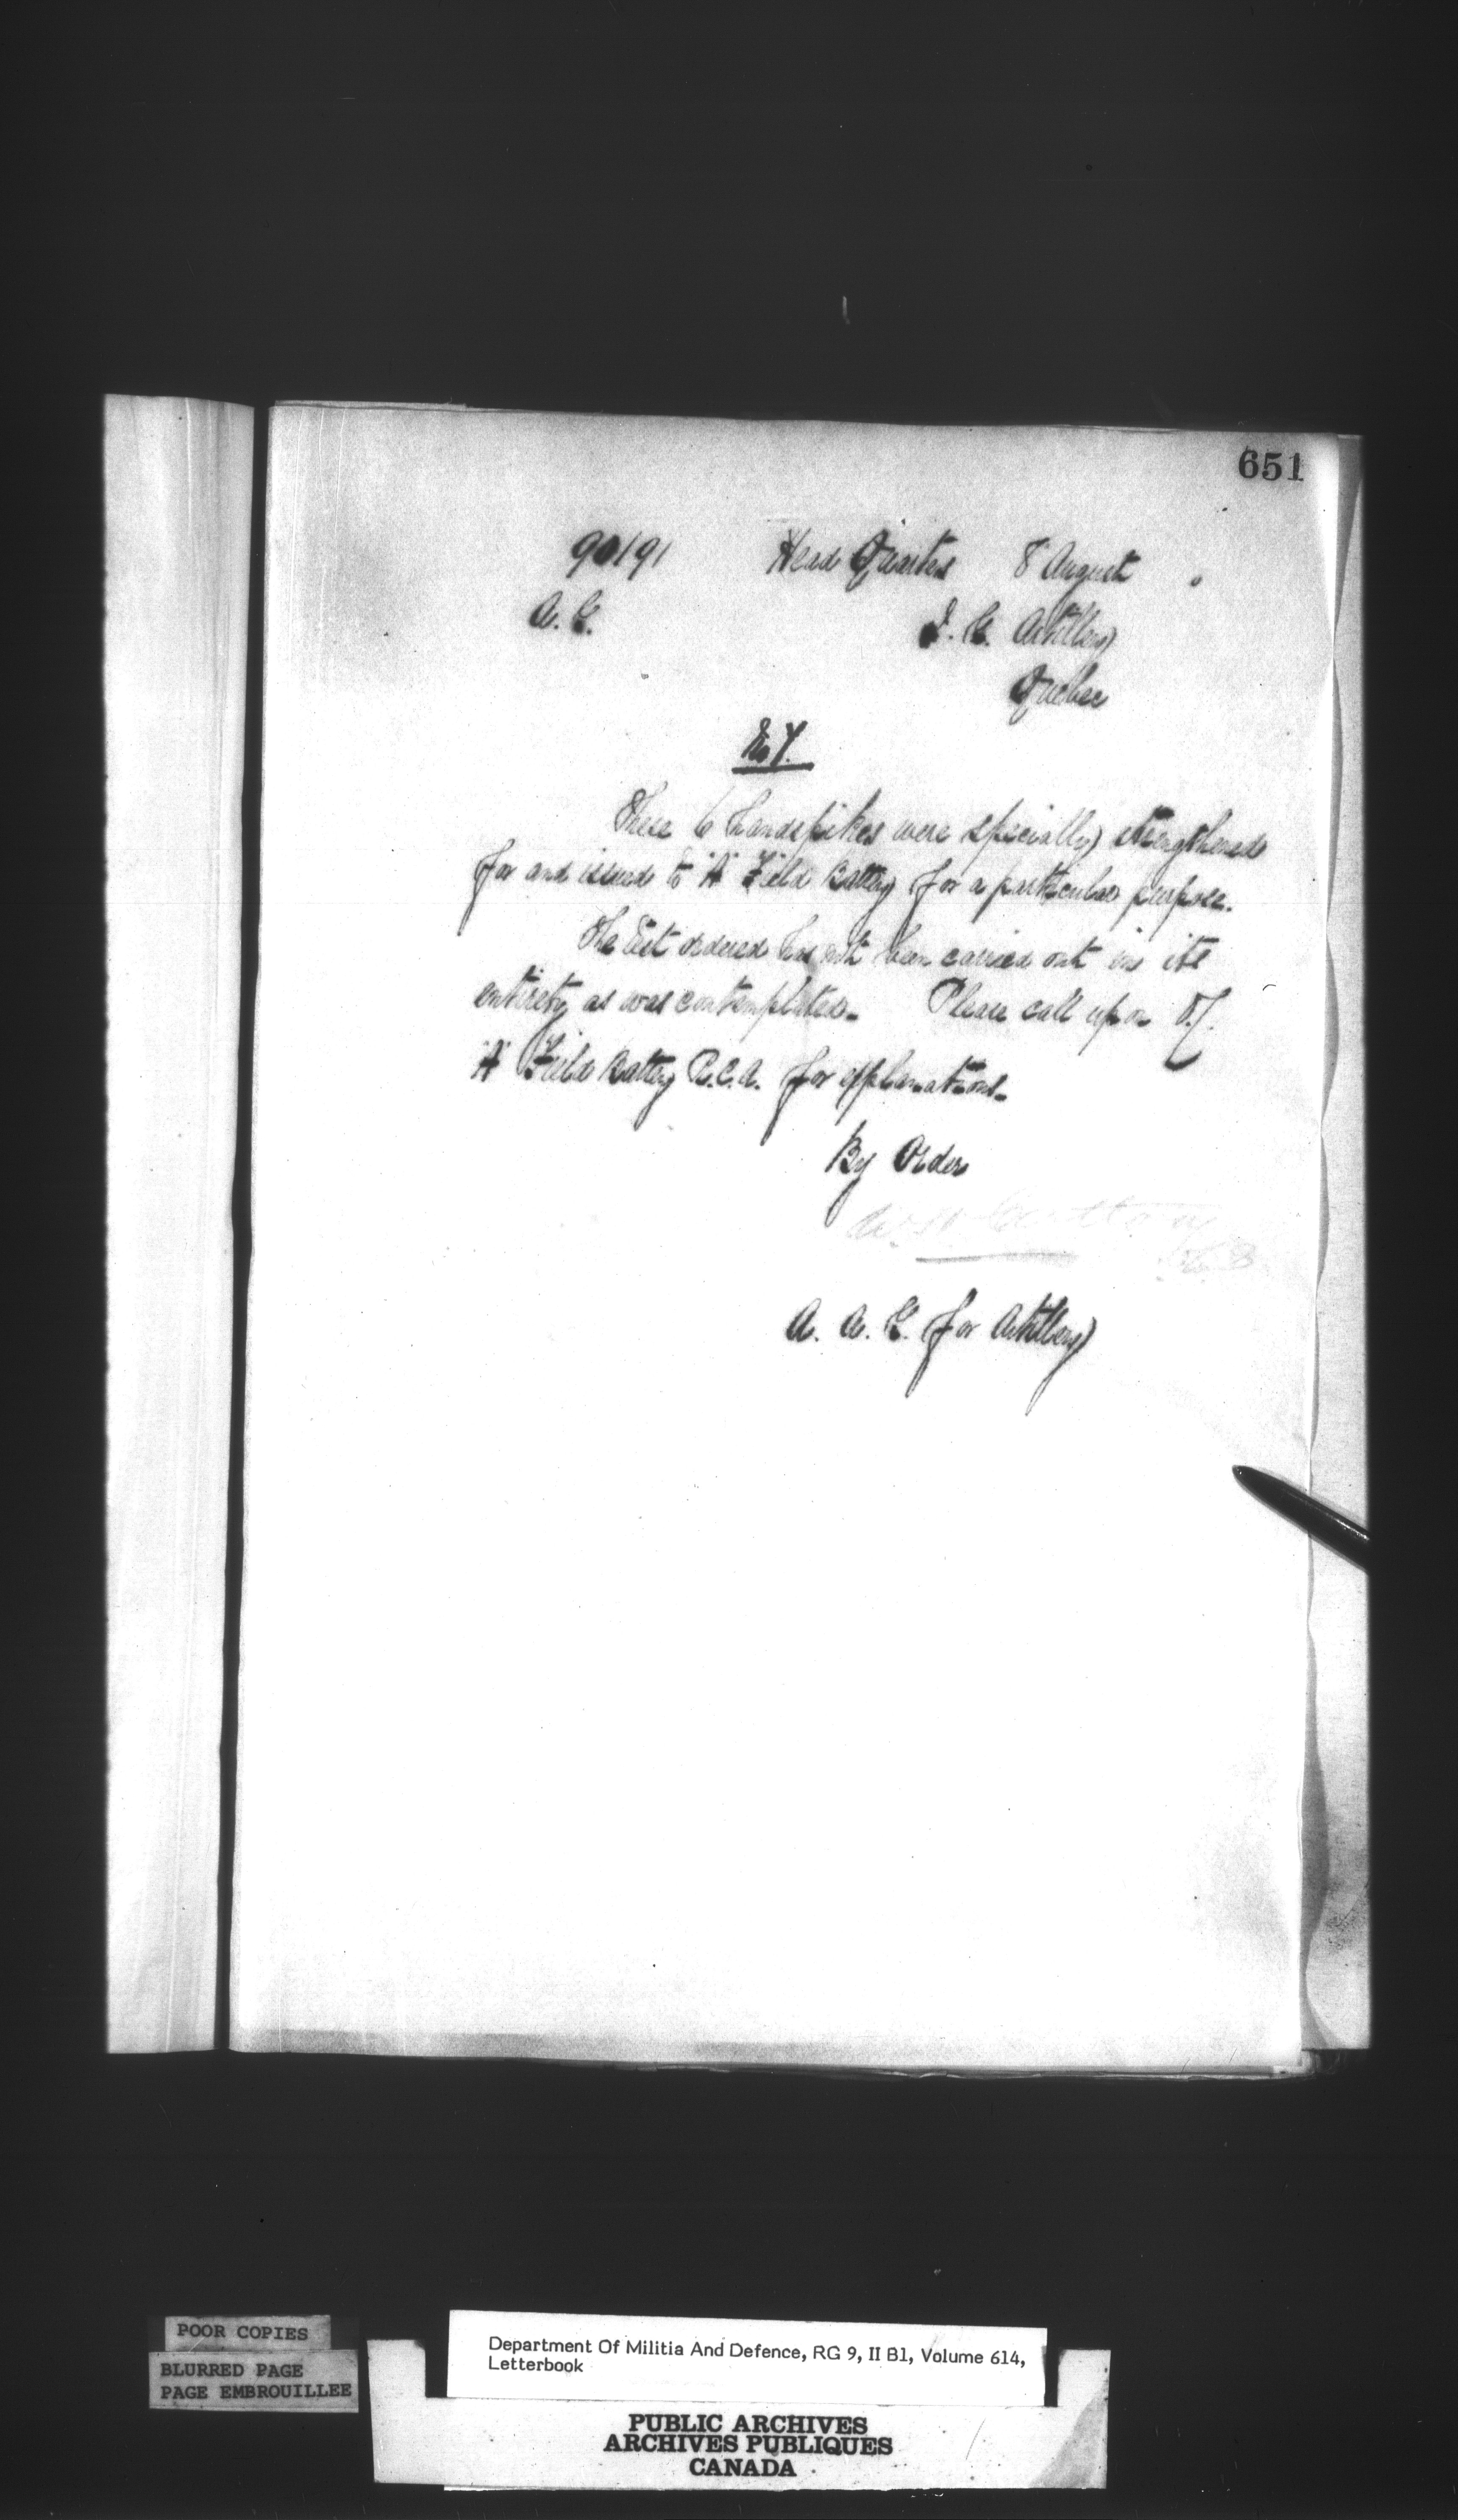 651
90191 Head Quarters 8 August
A. G. I. G. Artillery
Quebec
These 6 handspikes were specially strengthened
for and issued to "A" Field Battery for a particular purpose.
The test ordered has not been carried out in its
entirety as was contemplated. Please call upon O.C.
"A" Field Battery R.C.A. for explanations.
By Order
A. A. G. for Artillery
POOR COPIES
BLURRED PAGE
PAGE EMBROUILLEE
Department Of Militia And Defence, RG 9, II B1, Volume 614,
Letterbook
PUBLIC ARCHIVES
ARCHIVES PUBLIQUES
CANADA